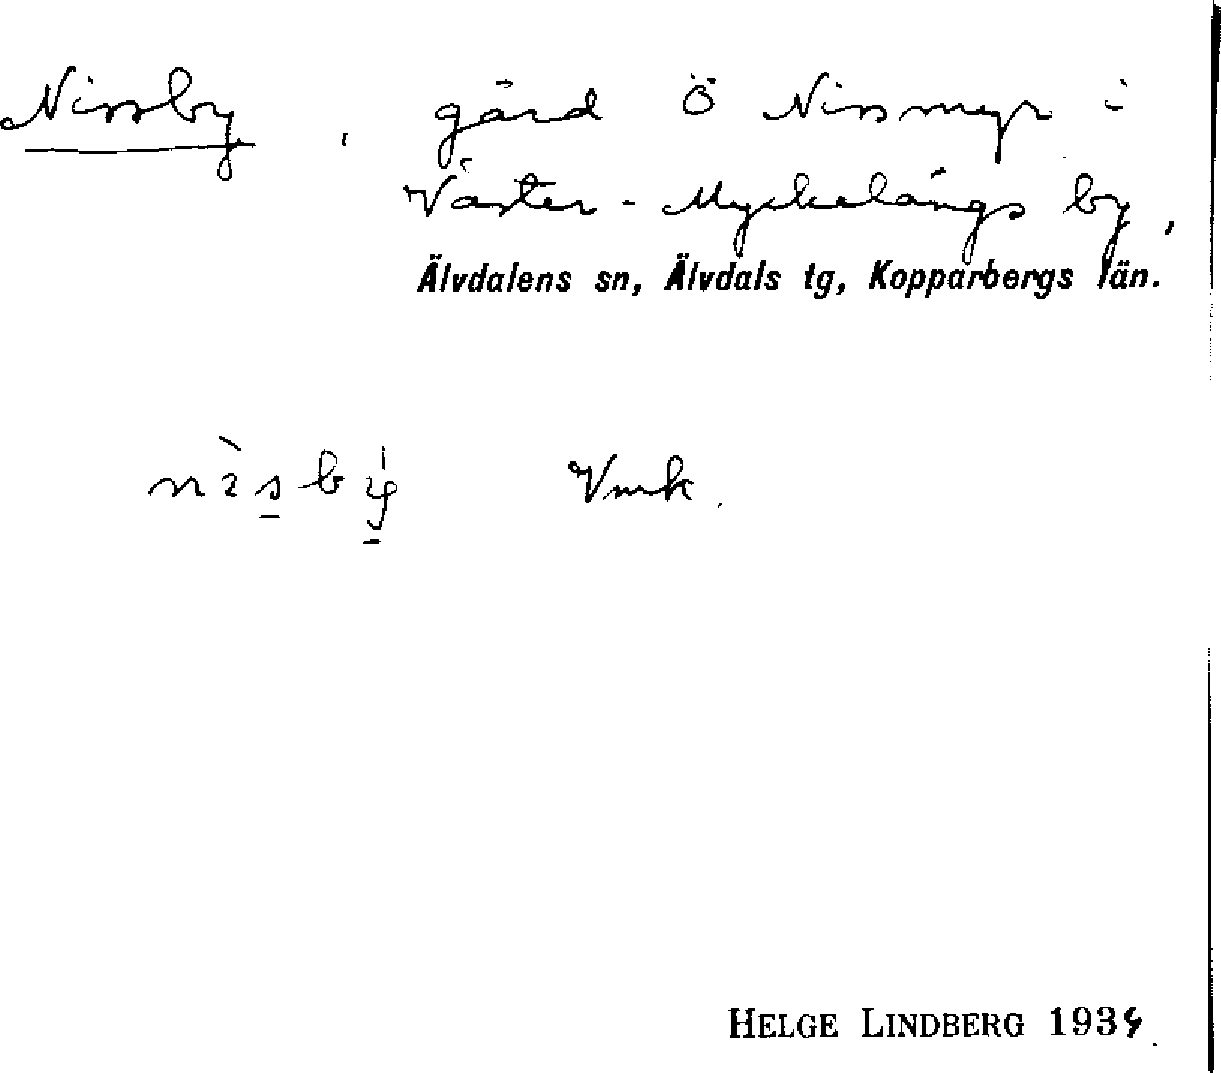 Nissby, gård Ö Nissmyr i
Väster-Myckelängs by,
Älvdalens sn, Älvdals tg, Kopparbergs län.
Vmk.
HELGE LINDBERG 1934.